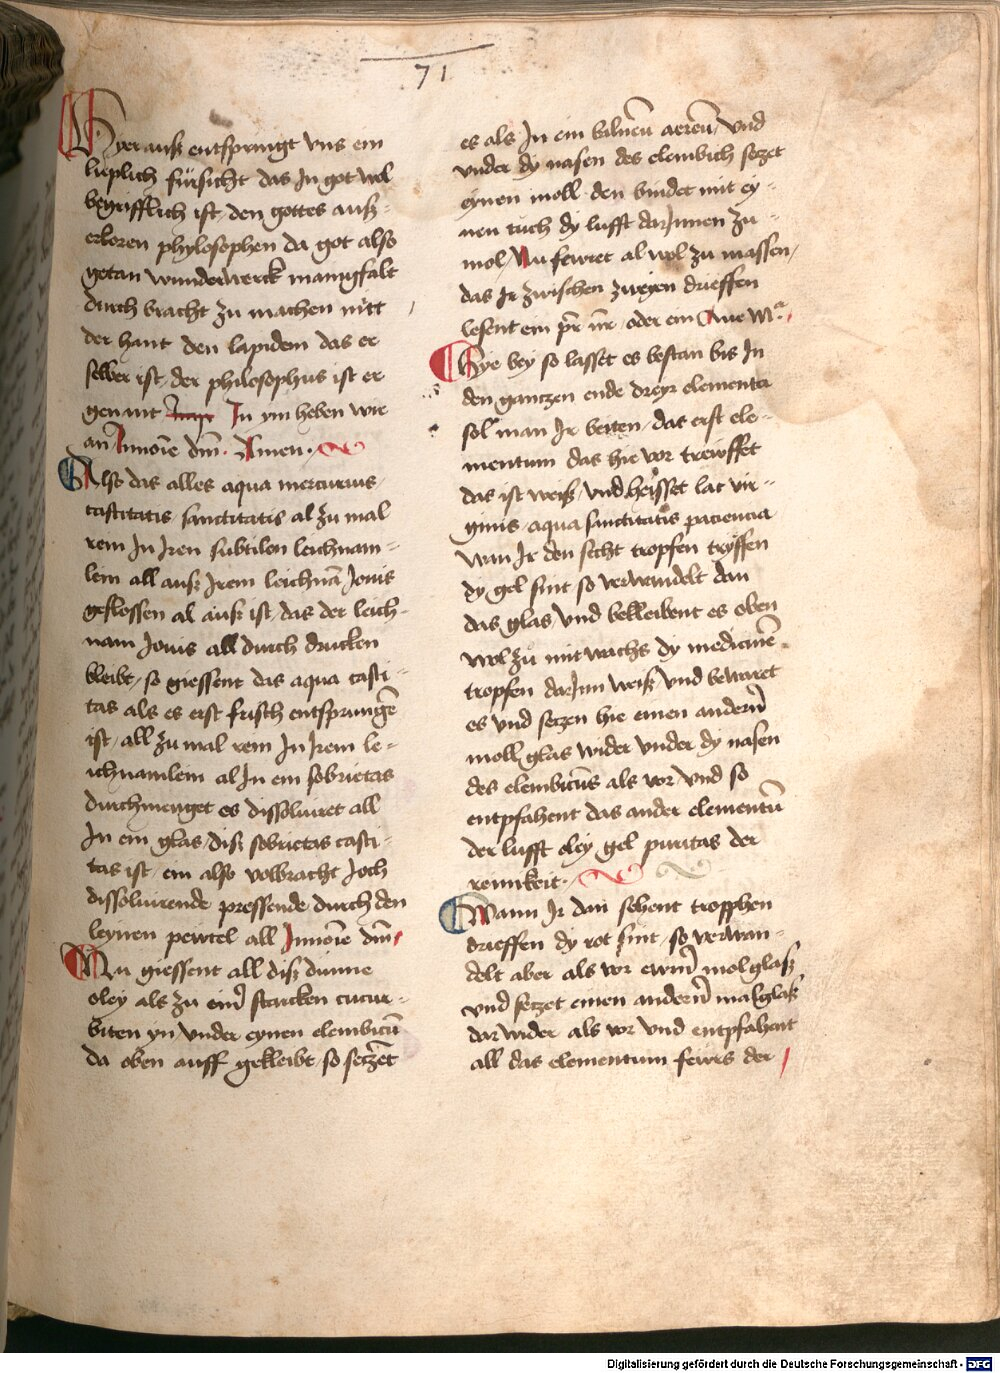 71
Hyer auß entspringt vns ein
lieplich fürsicht das In got wol
begrifflich ist den gottes auß-
erkoren phylosophen da got also
getan wunderwerck manigfalt
durch bracht zu machen mitt
der hant den lapidem das er
selber ist, der philosophus ist er
genant In ym heben wir
an Innoīe dm̄. Amen.
Also das alles aqua mercurius,
castitatis, sanctitatis al zu mal
rein In Iren subtilen leichnam-
lein all auß Irem leichnā Jouis
geflossen al auß ist, das der leich-
nam Jouis all durch drucken
bleibt, so giessent das aqua casti-
tas als es erst frisch entsprungē
ist, all zu mal rein In Irem le-
ichnamlein al In ein sobrietas
durchmenget es dissoluiret all
In ein glas, diß sobrietas casti-
tas ist, ein also volbracht Joch
dissoluirende pressende durch den
leynen pewtel all Innoīe dm̄
Nu giessent all diß dünne
oley als zu einē starcken cucur-
biten yn, vnder eynen elembicū
da oben auff gekleibt, so setzet
es als In ein balneū aereū, vnd
vnder dy nasen des elembich setzet
eynen moll, den bindet mit ey-
nen tuch dy lufft darInnen zu-
mol, Nu fewret al wol zu massen,
das Ir zwischen zweyen drieffen
lesent ein pr̄ nr̄, oder ein Aue Mᵃ,
Hye bey so lasset es bestan bis In
den gantzen ende dreyr elementa
sol man Ir beiten, das erst ele-
mentum das hie vor treüffet
das ist weiß, vnd heisset lac vir-
ginis, aqua sanctitatis paciencia
wan Ir den secht tropfen tryffen
dy gel sint so verwandelt dan
das glas, vnd bekleibent es oben
wol zu mit wachs dy medicinē
tropfen darInn weiß vnd bewaret
es vnd setzen hie einen andern̄
moll glas wider vnder dy nasen
des elembicus als vor vnd so
entpfahent das ander elementū
der lufft oley gel puritas der
reinikeit.
Wann Ir dan sehent tropphen
drieffen dy rot sint, so verwan-
delt aber als vor ewrn̄ molglaß
vnd setzet einen andern̄ malglaß
dar wider als vor vnd entpfahent
all das elementum fewrs der
Digitalisierung gefördert durch die Deutsche Forschungsgemeinschaft - DFG